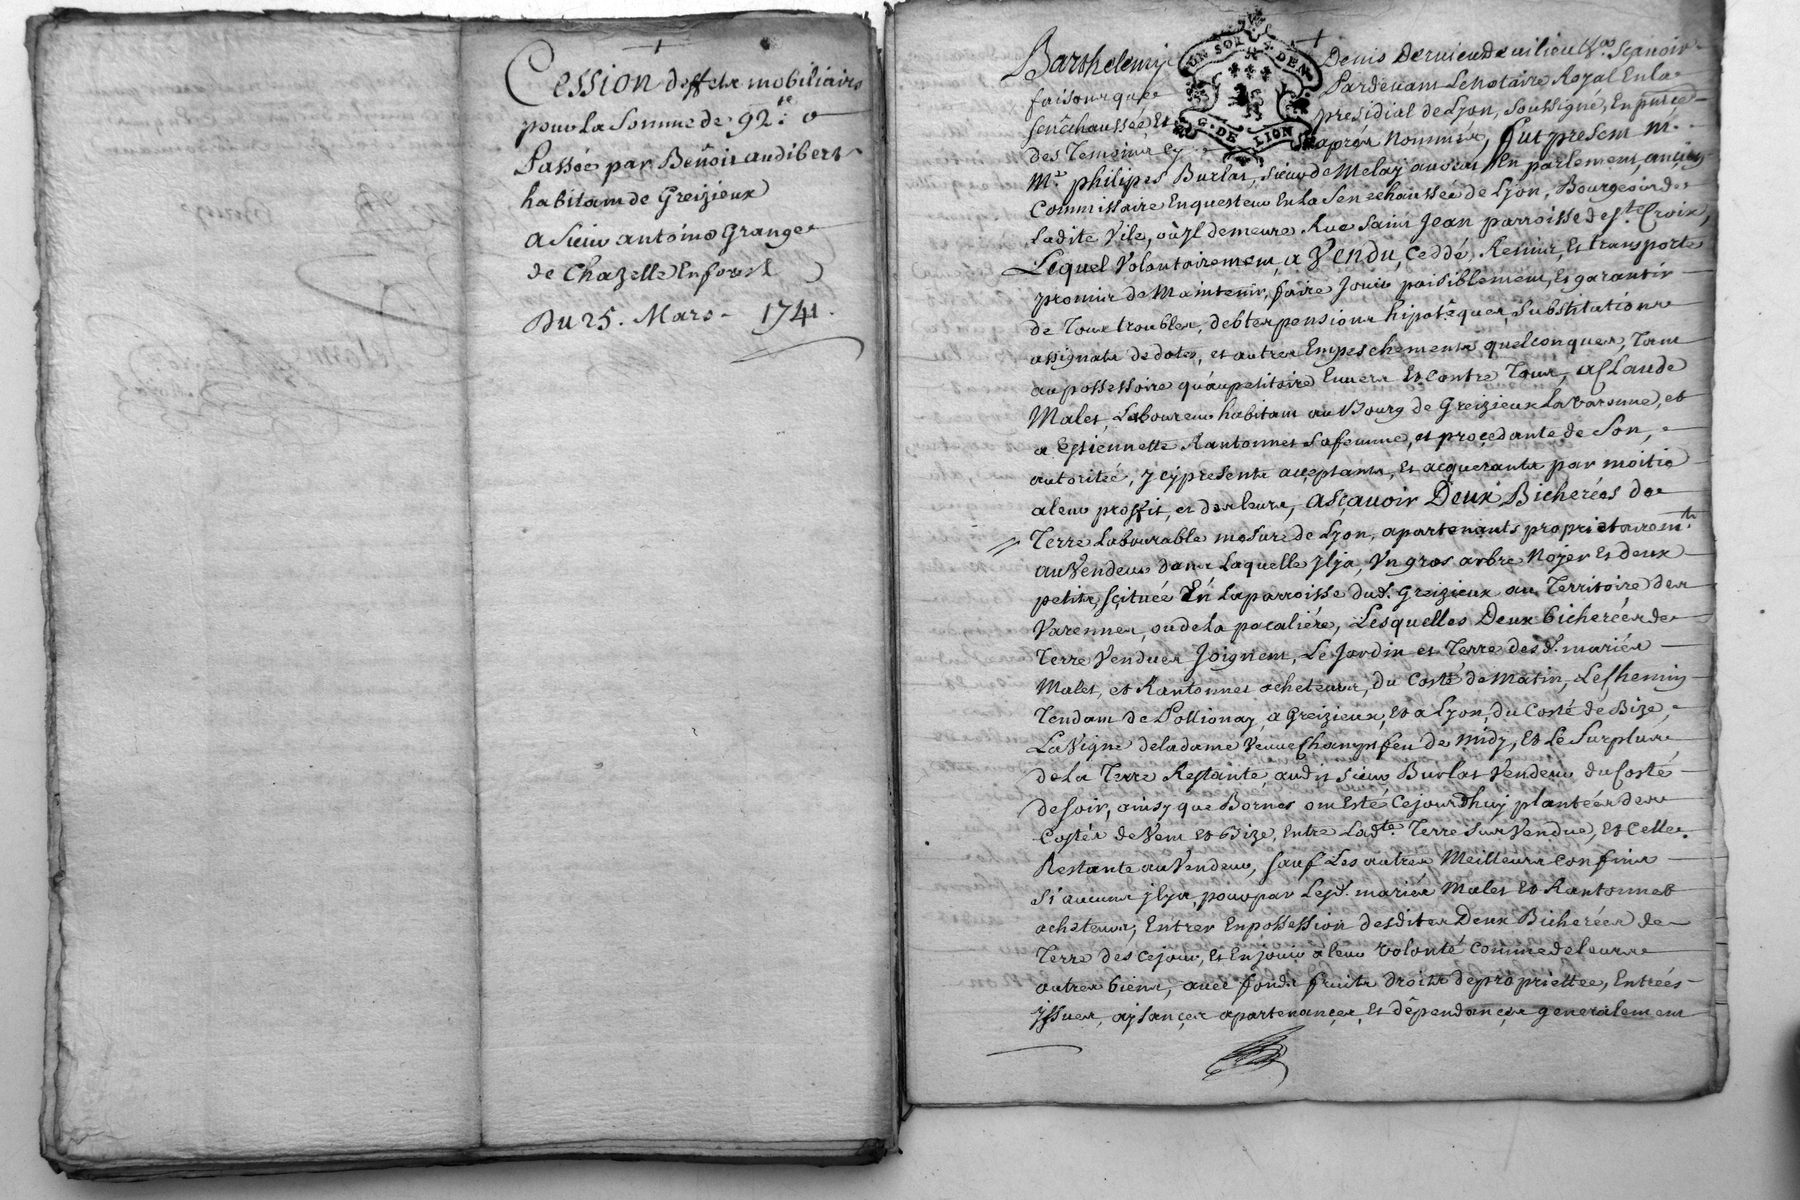 Cession deffets mobiliairs
pour la Somme de 92.# 0
Passée par Benoit audibert
habitant de Greizieux
a Sieur antoine Grange
de Chazelle en forest
Du 25. Mars - 1741.
Barthelemy Denis Dervieu de uilieu Scauoir
UN SOL DEN
G. DE LION
faisons que Pardeuant Le Notaire Royal En la
senêchaussée Et presidial de Lyon, soussigné, En
des Temoins cy aprés Nommés, fut present M.e
M.e philipes Burlat, sieur de Melay auocat En parlement, ancien
Commissaire Enquesteur En la Senechaussée de Lyon, Bourgeois de
Ladite Ville, où Jl demeure Rue Saint Jean parroisse de S.te Croix,
Lequel Volontairement, a Vendu, Ceddé, Remis, Et transporte
promis de Maintenir, faire Jouir paisiblement, Et garantir
de Tous troubles, debtes pensions hipoteques, Substitutions
assignats de dotes, et autres Empeschements quelconques, Tant
au possessoire qu'au petitoire Enuers Et Contre Tous, a Claude
Malet, Laboureur habitant au Bourg de Greizieux La Varenne, et
a Estiennette Rantonnet sa femme, et procedante de Son,
autorité, y cy presents acceptants, Et acquerants par moitie
a leur proffit, et des leurs, ascauoir Deux Bicherées de
Terre Labourable mesure de Lyon, apartenants proprietairem.t
au Vendeur dans Laquelle Jlya, Vn gros arbre Noyer Et deux
petits, scituée En La parroisse dud. Greizieux au Territoire des
Varennes, ou de La pacaliére, Lesquelles Deux bicherées de
Terre Vendues Joignent, Le Jardin et Terre desd. mariés
Malet, et Rantonnet acheteurs, du Costé de Matin, Le Chemin
Tendant de Pollionay, a Greizieux, Et a Lyon, du Costé de Bize,
La Vigne de la dame Veuue Champt feu de Midy, Et Le Surplus
de La Terre Restante audit sieur Burlat Vendeur du Costé
de soir, ainsy que Bornes ont Esté Cejourd'huy plantées des
Costés de Vent Et Bize, Entre Lad.te Terre sus Vendue, Et Celle
Restante au Vendeur, sauf Les autres Meilleurs Confins
Si aucuns Jlya pour par Lesd. mariés Malet Et Rantonnet
acheteurs, Entrer En possession desdites Deux Bicherées de
Terre des Cejour, Et En jouir a leur Volonté Comme de leurs
autres biens, auec fonds fruits droits de propriettee, Entrées
Jssues, aysances apartenances, Et dêpendances generalement